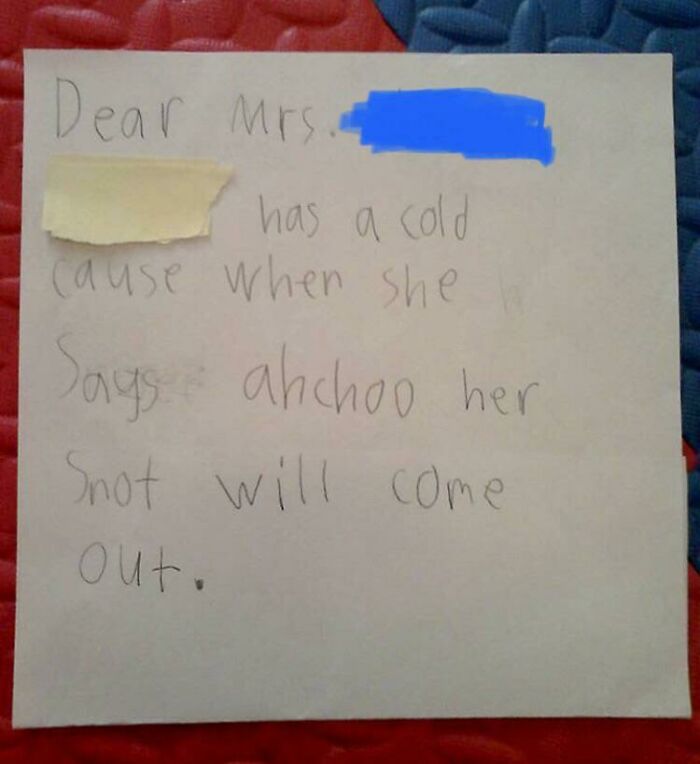 Dear Mrs.
has a cold
cause when she
Says ahchoo her
Snot will come
out.